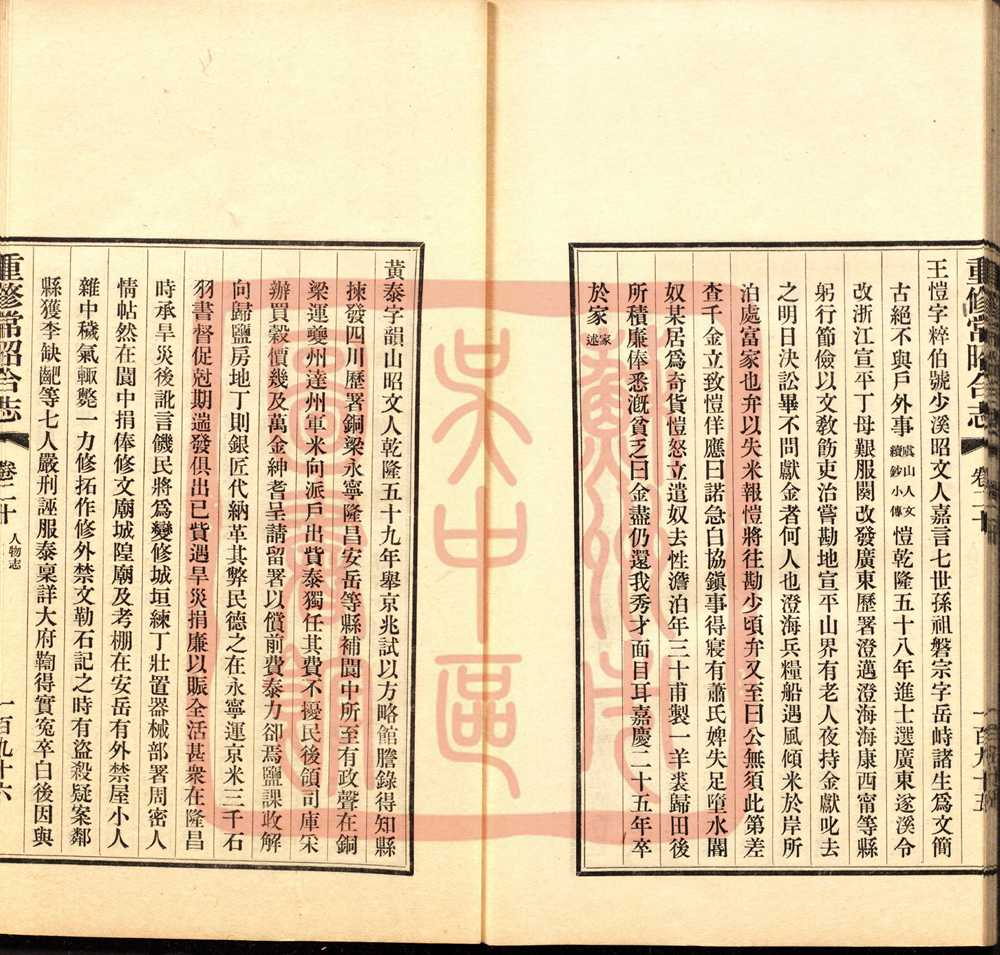 重修常昭合志 卷二十 一百九十五
王愷字粹伯號少溪昭文人嘉言七世孫祖磐宗字岳峙諸生爲文簡
古絕不與戶外事虞山人文續鈔小傳愷乾隆五十八年進士選廣東遂溪令
改浙江宣平丁母艱服闋改發廣東歷署澄邁澄海海康西甯等縣
躬行節儉以文敎飭吏治嘗勘地宣平山界有老人夜持金獻叱去
之明日決訟畢不問獻金者何人也澄海兵糧船遇風傾米於岸所
泊處富家也弁以失米報愷將往勘少頃弁又至曰公無須此第差
查千金立致愷佯應曰諾急白協鎭事得寢有蕭氏婢失足墮水閣
奴某居爲奇貨愷怒立遣奴去性澹泊年三十甫製一羊裘歸田後
所積廉俸悉漑貧乏曰金盡仍還我秀才面目耳嘉慶二十五年卒
於家家述
黃泰字韻山昭文人乾隆五十九年舉京兆試以方略館謄錄得知縣
揀發四川歷署銅梁永寧隆昌安岳等縣補閬中所至有政聲在銅
梁運夔州達州軍米向派戶出貲泰獨任其費不擾民後領司庫采
辦買穀價幾及萬金紳耆呈請留署以償前費泰力卻焉鹽課政解
向歸鹽房地丁則銀匠代納革其弊民德之在永寧運京米三千石
羽書督促尅期遄發俱出已貲遇旱災捐廉以賑全活甚衆在隆昌
時承旱災後訛言饑民將爲變修城垣練丁壯置器械部署周密人
情帖然在閬中捐俸修文廟城隍廟及考棚在安岳有外禁屋小人
雜中穢氣輒斃一力修拓作修外禁文勒石記之時有盜殺疑案鄰
縣獲李缺齙等七人嚴刑誣服泰稟詳大府鞫得實寃卒白後因與
重修常昭合志 卷二十 人物志 一百九十六